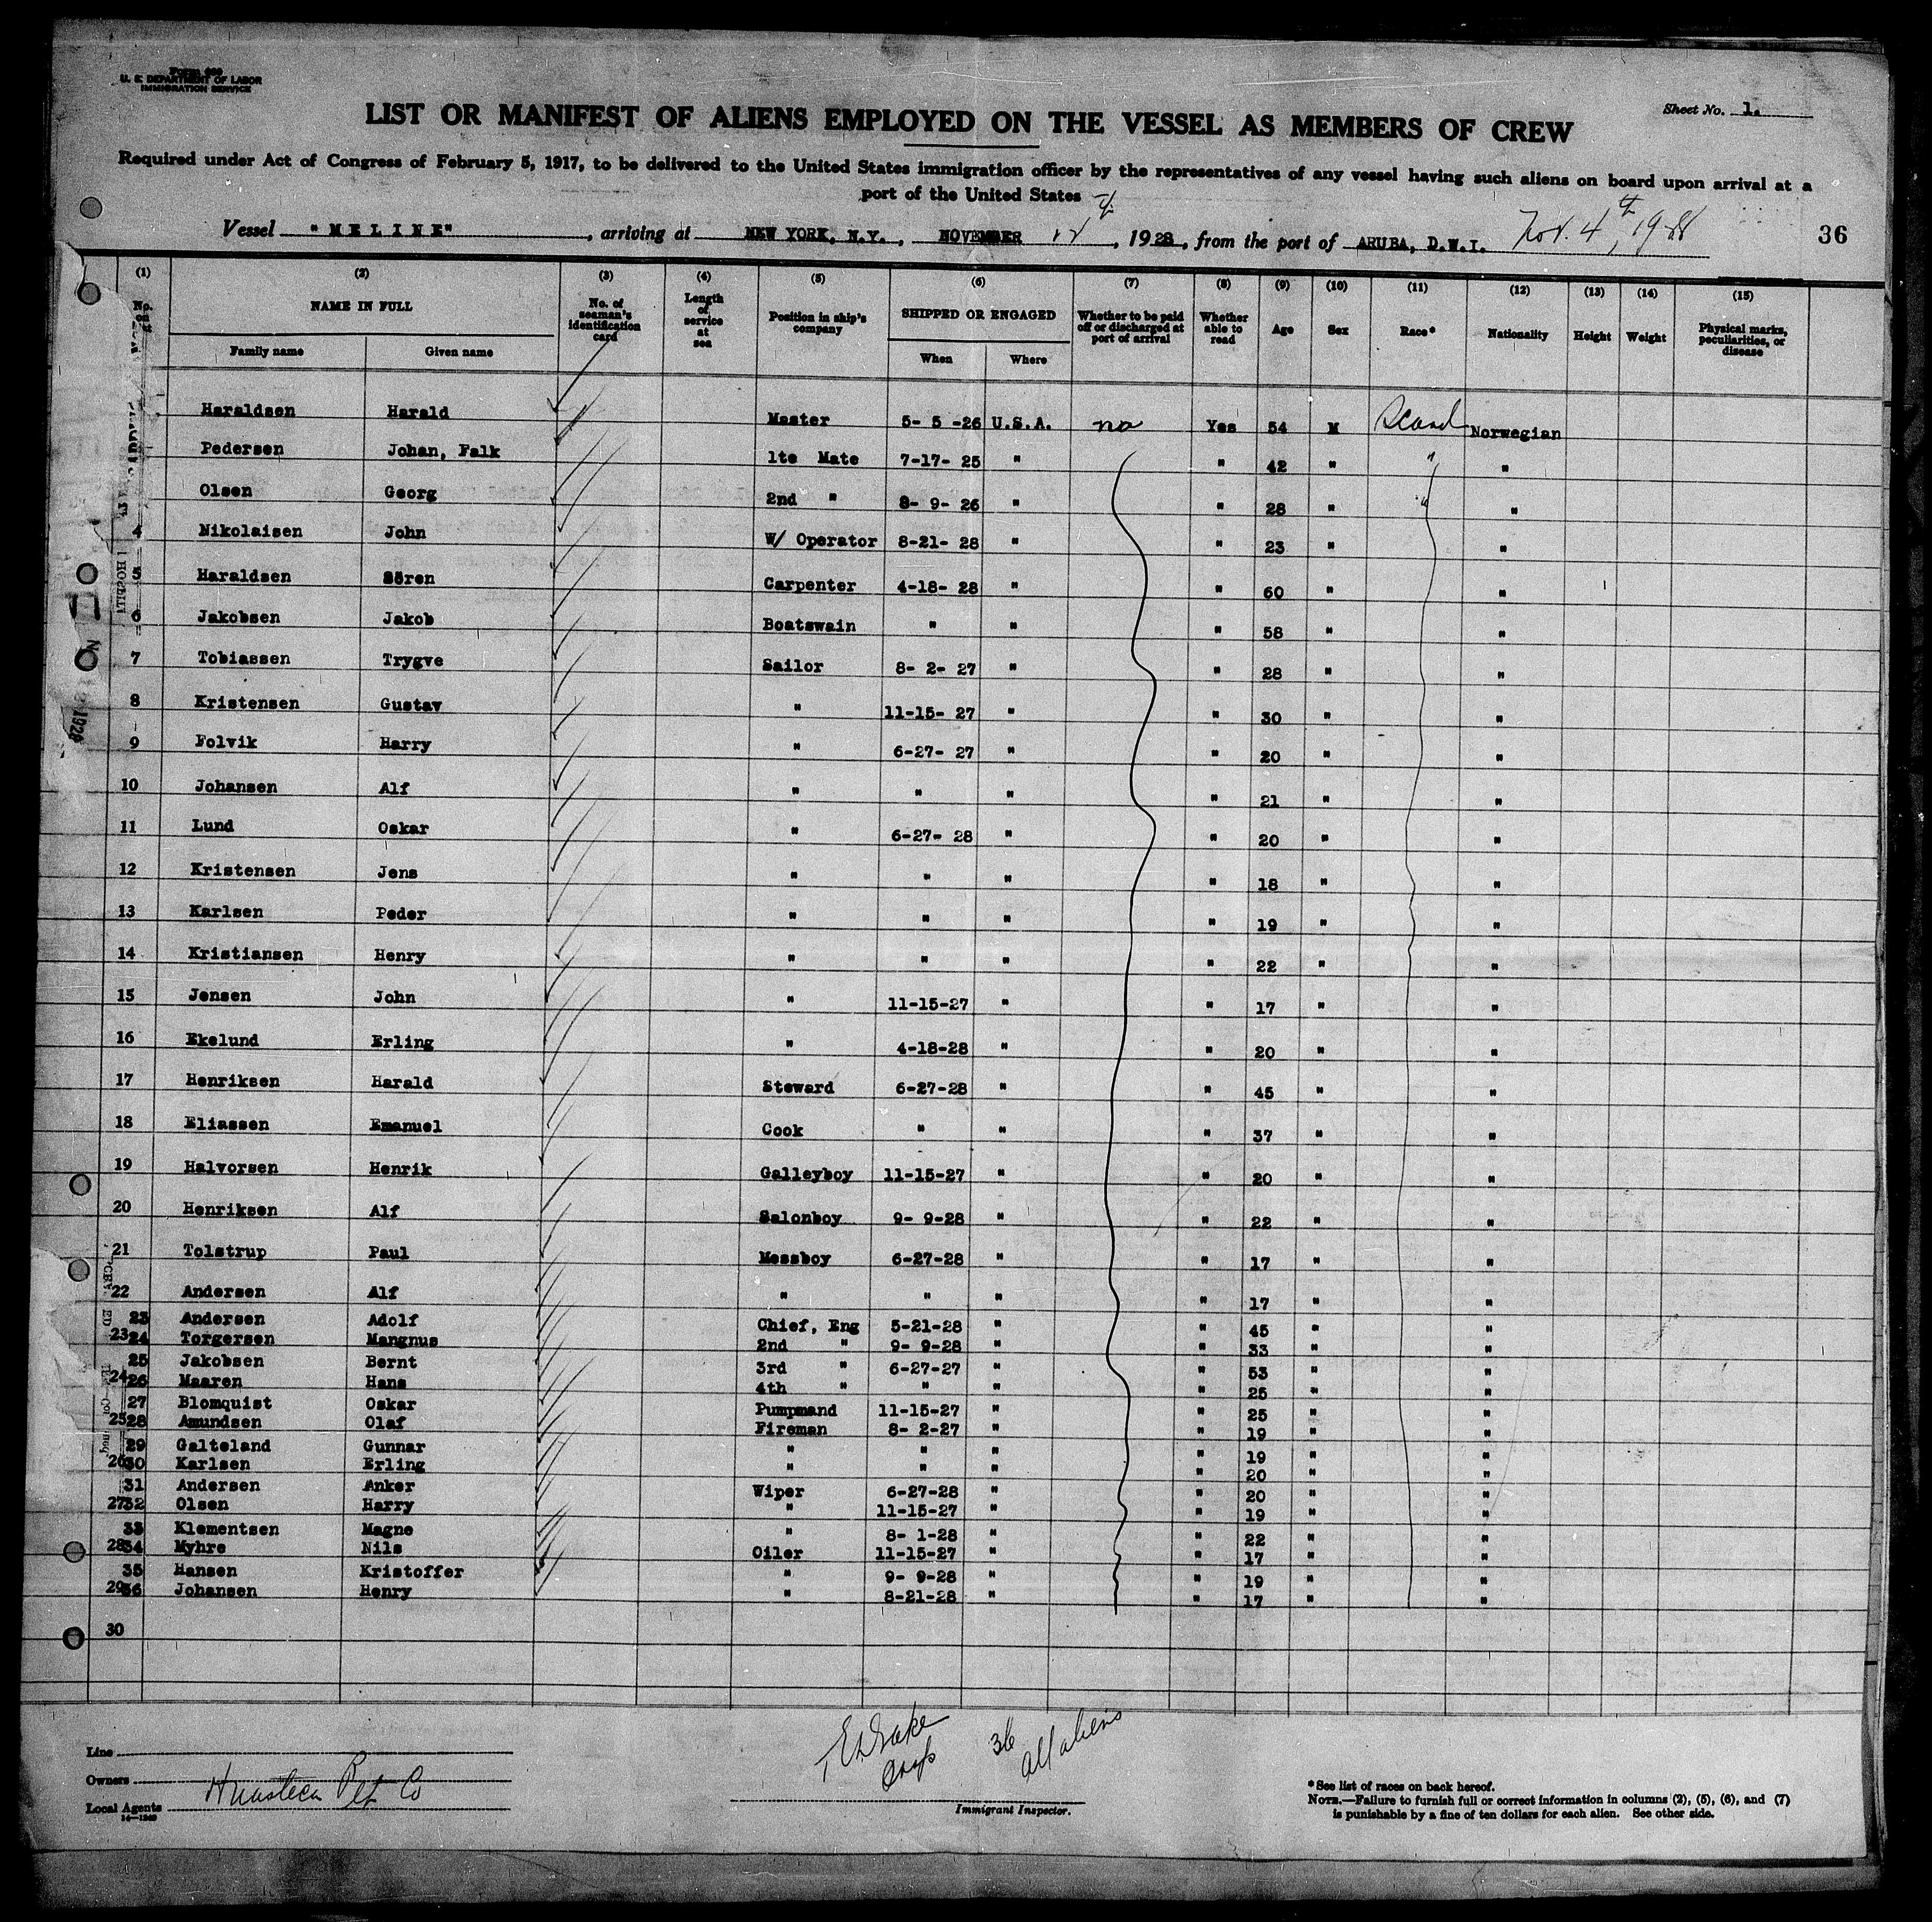 Form 680
U. S. DEPARTMENT OF LABOR
IMMIGRATION SERVICE
Sheet No. 1.
LIST OR MANIFEST OF ALIENS EMPLOYED ON THE VESSEL AS MEMBERS OF CREW
Required under Act of Congress of February 5, 1917, to be delivered to the United States immigration officer by the representatives of any vessel having such aliens on board upon arrival at a
port of the United States
Vessel "MELINE", arriving at NEW YORK, N.Y., NOVEMBER 12th, 1928, from the port of ARUBA, D.W.I. Nov. 4th, 1928
36
(1) (2) (3) (4) (5) (6) (7) (8) (9) (10) (11) (12) (13) (14) (15)
No. on NAME IN FULL Family name Given name No. of seaman's identification card Length of service at sea Position in ship's company SHIPPED OR ENGAGED When Where Whether to be paid off or discharged at port of arrival Whether able to read Age Sex Race* Nationality Height Weight Physical marks, peculiarities, or disease
Haraldsen Harald Master 5- 5 -26 U.S.A. no Yes 54 M Scand Norwegian
Pedersen Johan, Falk 1te Mate 7-17- 25 " " 42 " " "
Olsen Georg 2nd " 8- 9- 26 " " 28 " " "
4 Nikolaisen John W/ Operator 8-21- 28 " " 23 " "
5 Haraldsen Sören Carpenter 4-18- 28 " " 60 " "
6 Jakobsen Jakob Boatswain " " " 58 " "
7 Tobiassen Trygve Sailor 8- 2- 27 " " 28 " "
8 Kristensen Gustav " 11-15- 27 " " 30 " "
9 Folvik Harry " 6-27- 27 " " 20 " "
10 Johansen Alf " " " " 21 " "
11 Lund Oskar " 6-27- 28 " " 20 " "
12 Kristensen Jens " " " " 18 " "
13 Karlsen Peder " " " " 19 " "
14 Kristiansen Henry " " " " 22 " "
15 Jensen John " 11-15-27 " " 17 " "
16 Ekelund Erling " 4-18-28 " " 20 " "
17 Henriksen Harald Steward 6-27-28 " " 45 " "
18 Eliassen Emanuel Cook " " " 37 " "
19 Halvorsen Henrik Galleyboy 11-15-27 " " 20 " "
20 Henriksen Alf Salonboy 9- 9-28 " " 22 " "
21 Tolstrup Paul Messboy 6-27-28 " " 17 " "
22 Andersen Alf " " " " 17 " "
23 Andersen Adolf Chief, Eng 5-21-28 " " 45 " "
23 24 Torgersen Mangnus 2nd " 9- 9-28 " " 33 " "
25 Jakobsen Bernt 3rd " 6-27-27 " " 53 " "
24 26 Maaren Hans 4th " " " " 25 " "
27 Blomquist Oskar Pumpmand 11-15-27 " " 25 " "
25 28 Amundsen Olaf Fireman 8- 2-27 " " 19 " "
29 Galteland Gunnar " " " " 19 " "
26 30 Karlsen Erling " " " " 20 " "
31 Andersen Anker Wiper 6-27-28 " " 20 " "
27 32 Olsen Harry " 11-15-27 " " 19 " "
33 Klementsen Magne " 8- 1-28 " " 22 " "
28 34 Myhre Nils Oiler 11-15-27 " " 17 " "
35 Hansen Kristoffer " 9- 9-28 " " 19 " "
29 36 Johansen Henry " 8-21-28 " " 17 " "
30
Line
Owners
Local Agents Huasteca Pet Co
14-1240
36 all aliens
Immigrant Inspector.
*See list of races on back hereof.
NOTE.—Failure to furnish full or correct information in columns (2), (5), (6), and (7)
is punishable by a fine of ten dollars for each alien. See other side.